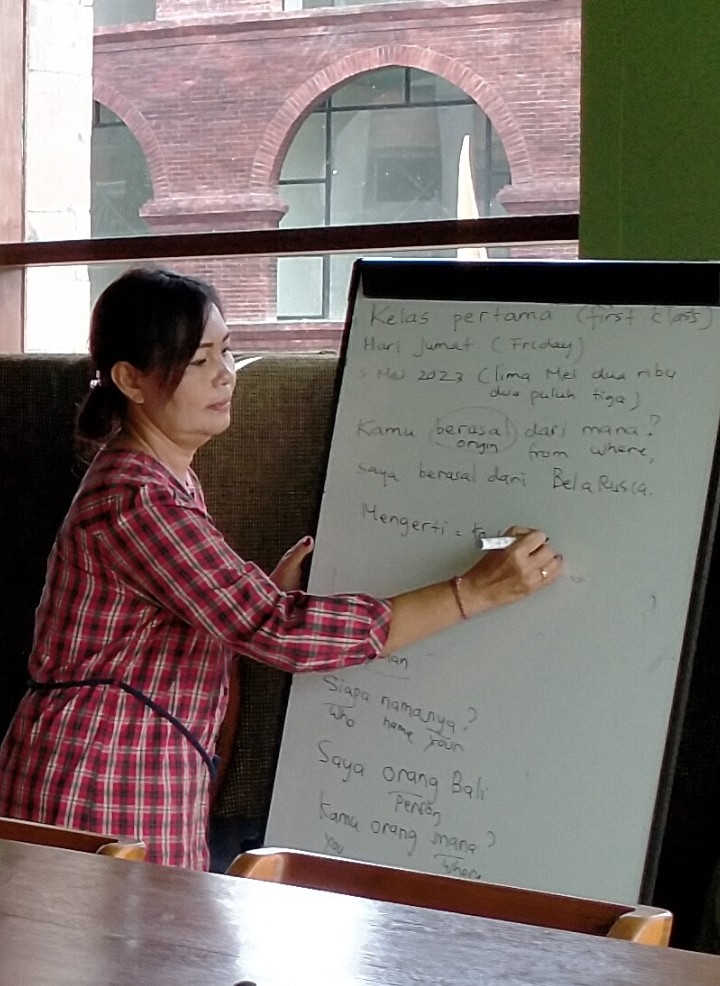 Kelas pertama (first class)
Hari Jumat (Friday)
5 Mei 2023 (lima Mei dua ribu
dua puluh tiga)
Kamu berasal dari mana?
origin from where,
Saya berasal dari BelaRusia.
Mengerti =
Siapa namanya?
Who name your
Saya orang Bali
Person
Kamu orang mana?
You Where